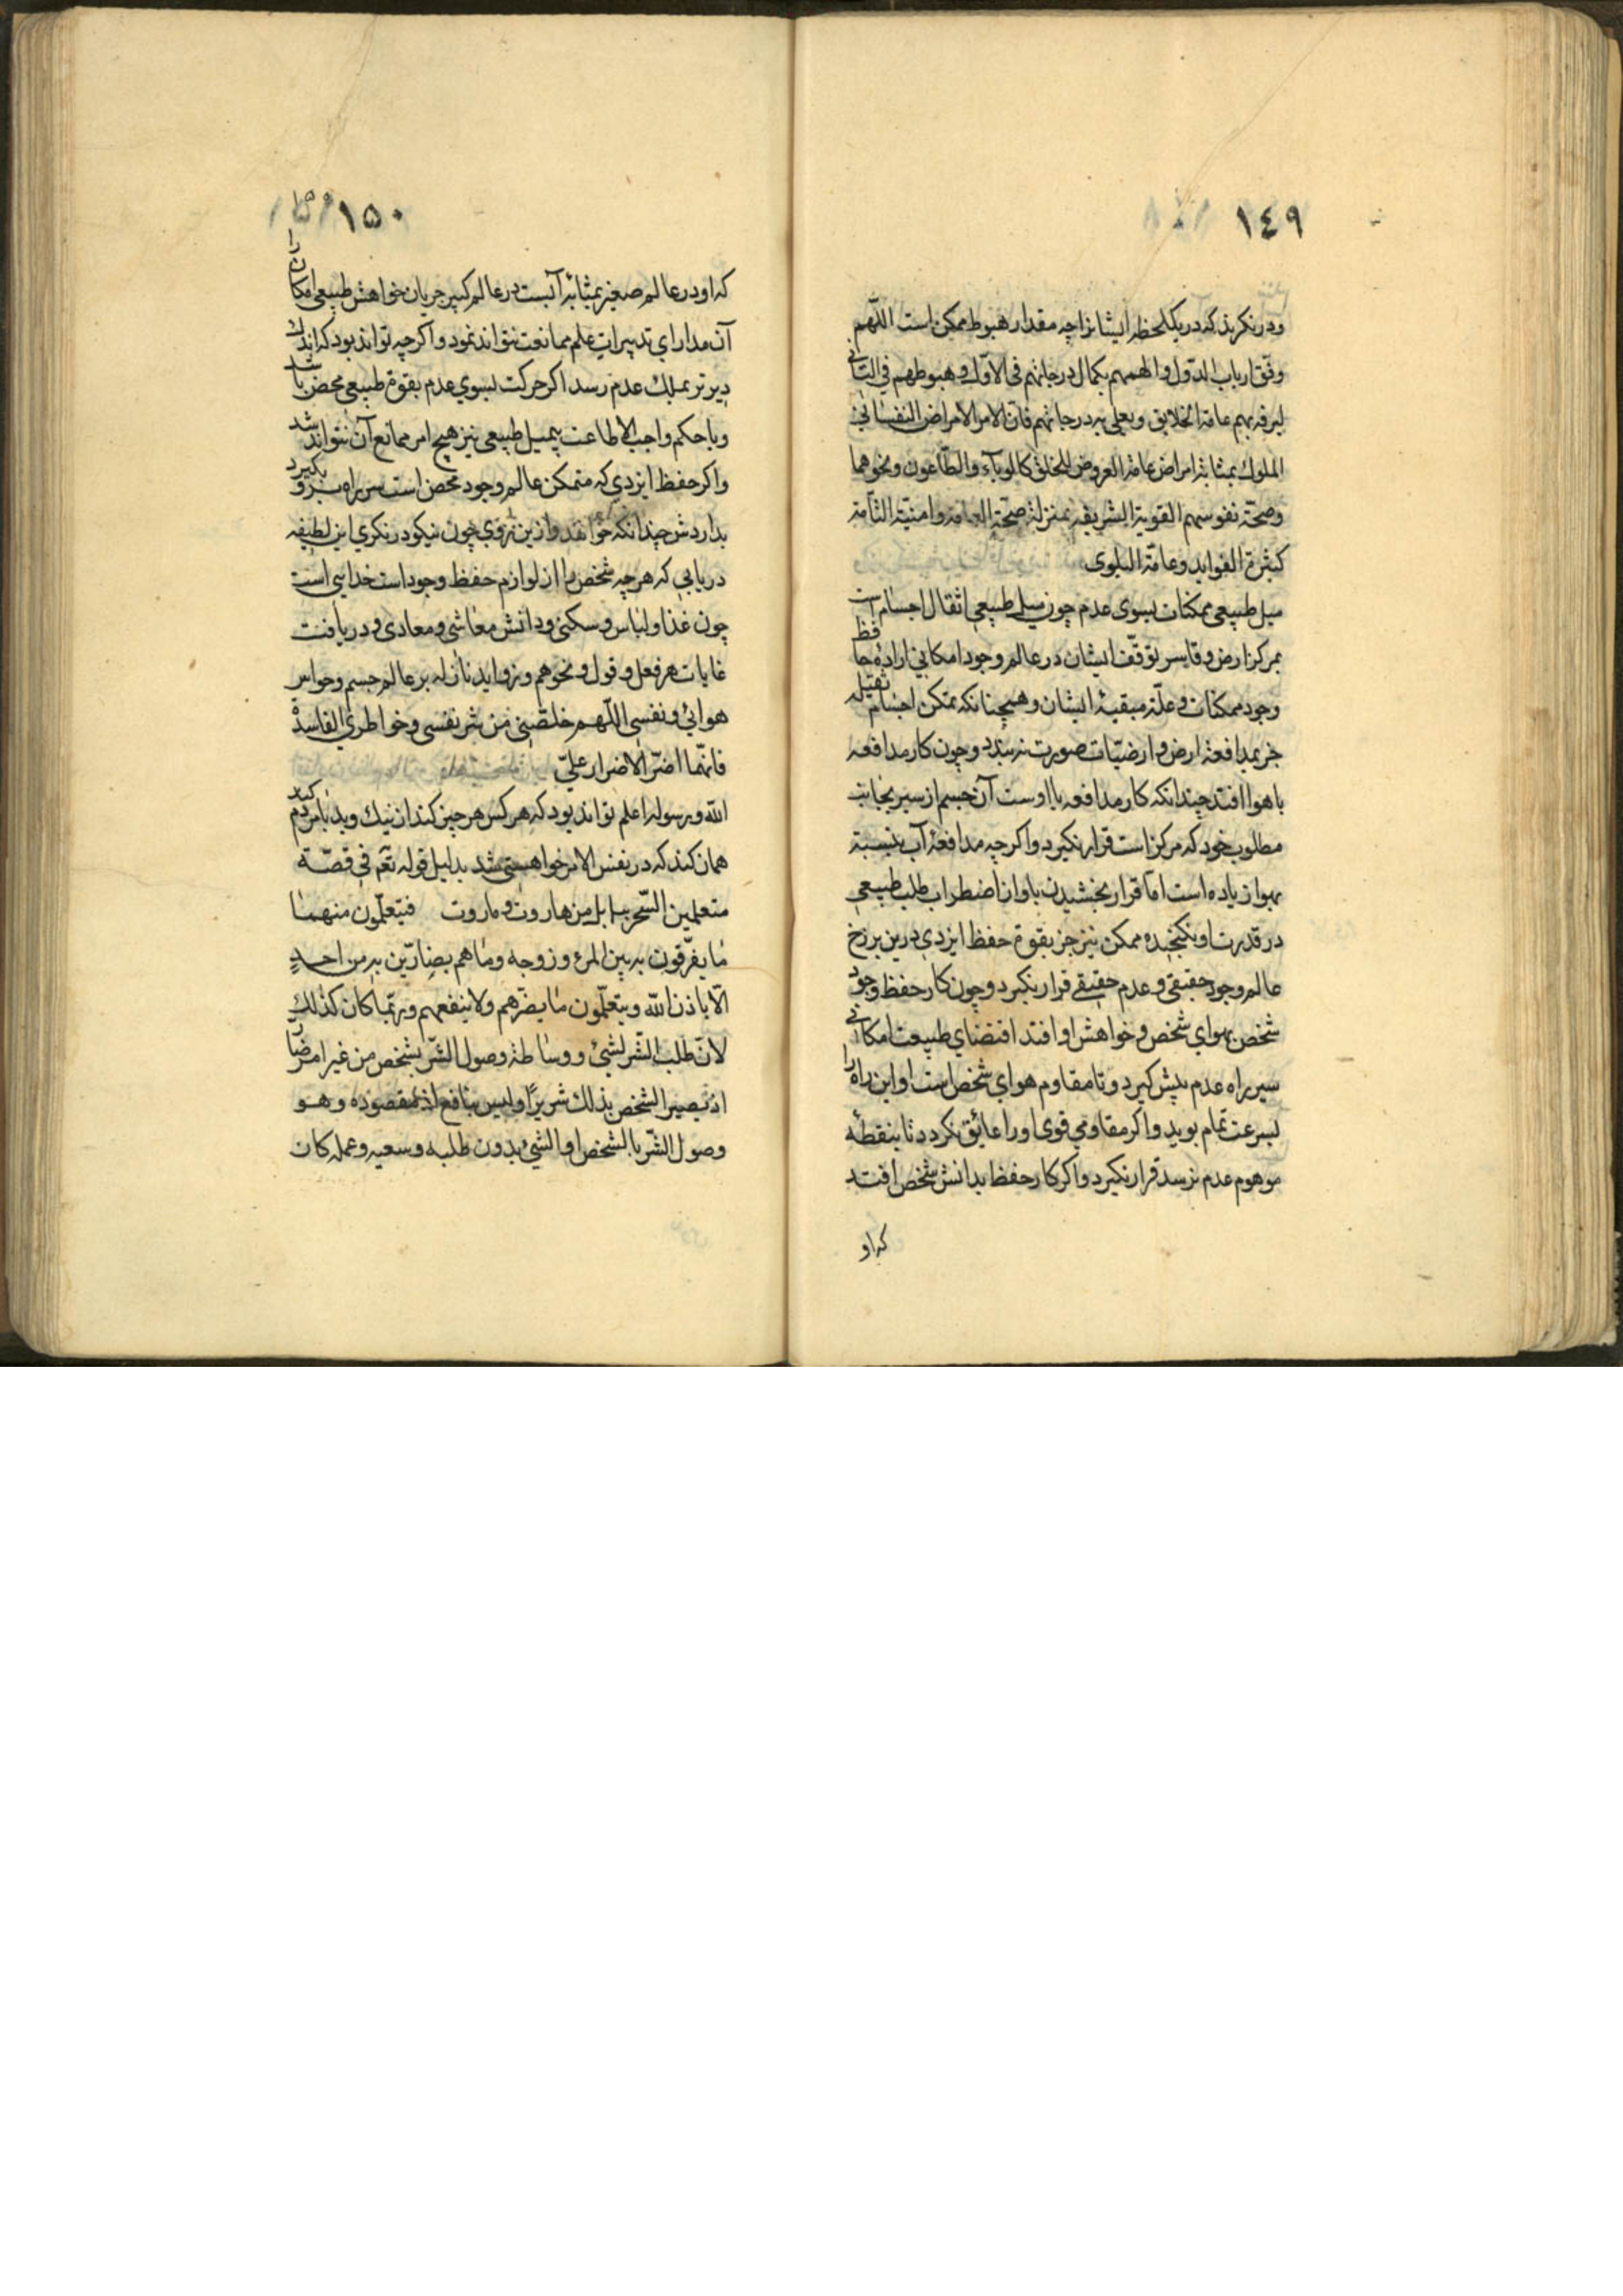 ١٤٩
ودر نکرید که در یکلحظه ایشانرا چه مقدار هبوط ممکن است اللّهم
وفّق ارباب الدّول والهمهم بکمال درجاتهم فی الاوّل وهبوطهم فی الثانی
لیرفه بهم عامة الخلایق ویعلی به درجاتهم فانّ الامراض النفسانی
الملوك بمثابة امراض عامة العروض للخلق کالوبآء والطّاعون ونحوهما
وصحّة نفوسهم القویة الشریفه بمنزلة صحّة العامة وامنیّة التّامة
کثیرة الفواید وعامّة البلوی
میل طبیعی ممکنان بسوی عدم چون میل طبیعی اثقال اجسام است
بمرکز ارض وقایسر توقّف ایشان در عالم وجود امکانی ارادۀ حافظ
وجود ممکنات وعلّة مبقیۀ ایشان وهمچنانکه تمکن اجسام ثقیله
جز بمدافعۀ ارض وارضیّات صورت نه بندد وچون کار مدافعه
با هوا افتد چندانکه کار مدافعه با اوست آن جسم از سیر بجانب
مطلوب خود که مرکز است قرار نکیرد واکرچه مدافعۀ آب بنسبة
بهوا زیاده است امّا قرار بخشیدن باو از اضطراب طلب طبیعی
در قدرت او نکنجیده ممکن نیز جز بقوة حفظ ایزدی درین برزخ
عالم وجود حقیقی وعدم حقیقی قرار نکیرد وچون کار حفظ وجود
شخص بهوای شخص وخواهش او افتد اقتضای طبیعت امکانی
سیر راه عدم پیش کیرد وتا مقاوم هوای شخص است او این راه را
بسرعت تمام پوید واکر مقاومی قوی او را عایق نکردد تا بنقطۀ
موهوم عدم نرسد قرار نکیرد واکر کار حفظ بدانش شخص افتد
که او
١٥٠
که او در عالم صغیر بمثابۀ آبست در عالم کبیر جریان خواهش طبیعی امکان را
آن مدارای تدبیرات علم ممانعت نتواند نمود واکرچه تواند بود که اندك
دیرتر بملك عدم رسد اکر حرکت بسوی عدم بقوة طبیعی محض باشد
وبا حکم واجب الاطاعت بمیل طبیعی نیز هیچ امر ممانع آن نتواند شد
واکر حفظ ایزدی که متمکن عالم وجود محض است سر راه برو بکیرد
بداردش چندانکه خواهد وازین روی چون نیکو در نکری این لطیفه
دریابی که هرچه شخص را از لوازم حفظ وجود است خدایی است
چون غذا ولباس وسکنی ودانش معاشی ومعادی ودریافت
غایات هر فعل وقول ونحوهم وزواید نازله بر عالم جسم وحواس
هوائی ونفسی اللّهم خلّصنی من شر نفسی وخواطری الفاسدة
فانّها اضرّ الاضرار علیّ
الله ورسوله اعلم تواند بود که هر کس هر چیز کند از نیك وبد با مردم کند
همان کند که در نفس الامر خواهستی شد بدلیل قوله تعم فی قصّة
متعلمین السّحر ببابل من هاروت وماروت فیتعلّمون منهما
ما یفرّقون به بین المرء وزوجه وما هم بضارّین به من احدٍ
الّا باذن الله ویتعلّمون ما یضرّهم ولا ینفعهم وربّما کان کذلك
لانّ طلب الشّر لشیٔ ووساطة وصول الشّر بشخص من غیر امر ضارّ
اذ یصیر الشخص بذلك شریرًا ولیس بنافع اذ مقصوده وهو
وصول الشّر بالشخص او الشیٔ بدون طلبه وسعیه وعمله کان